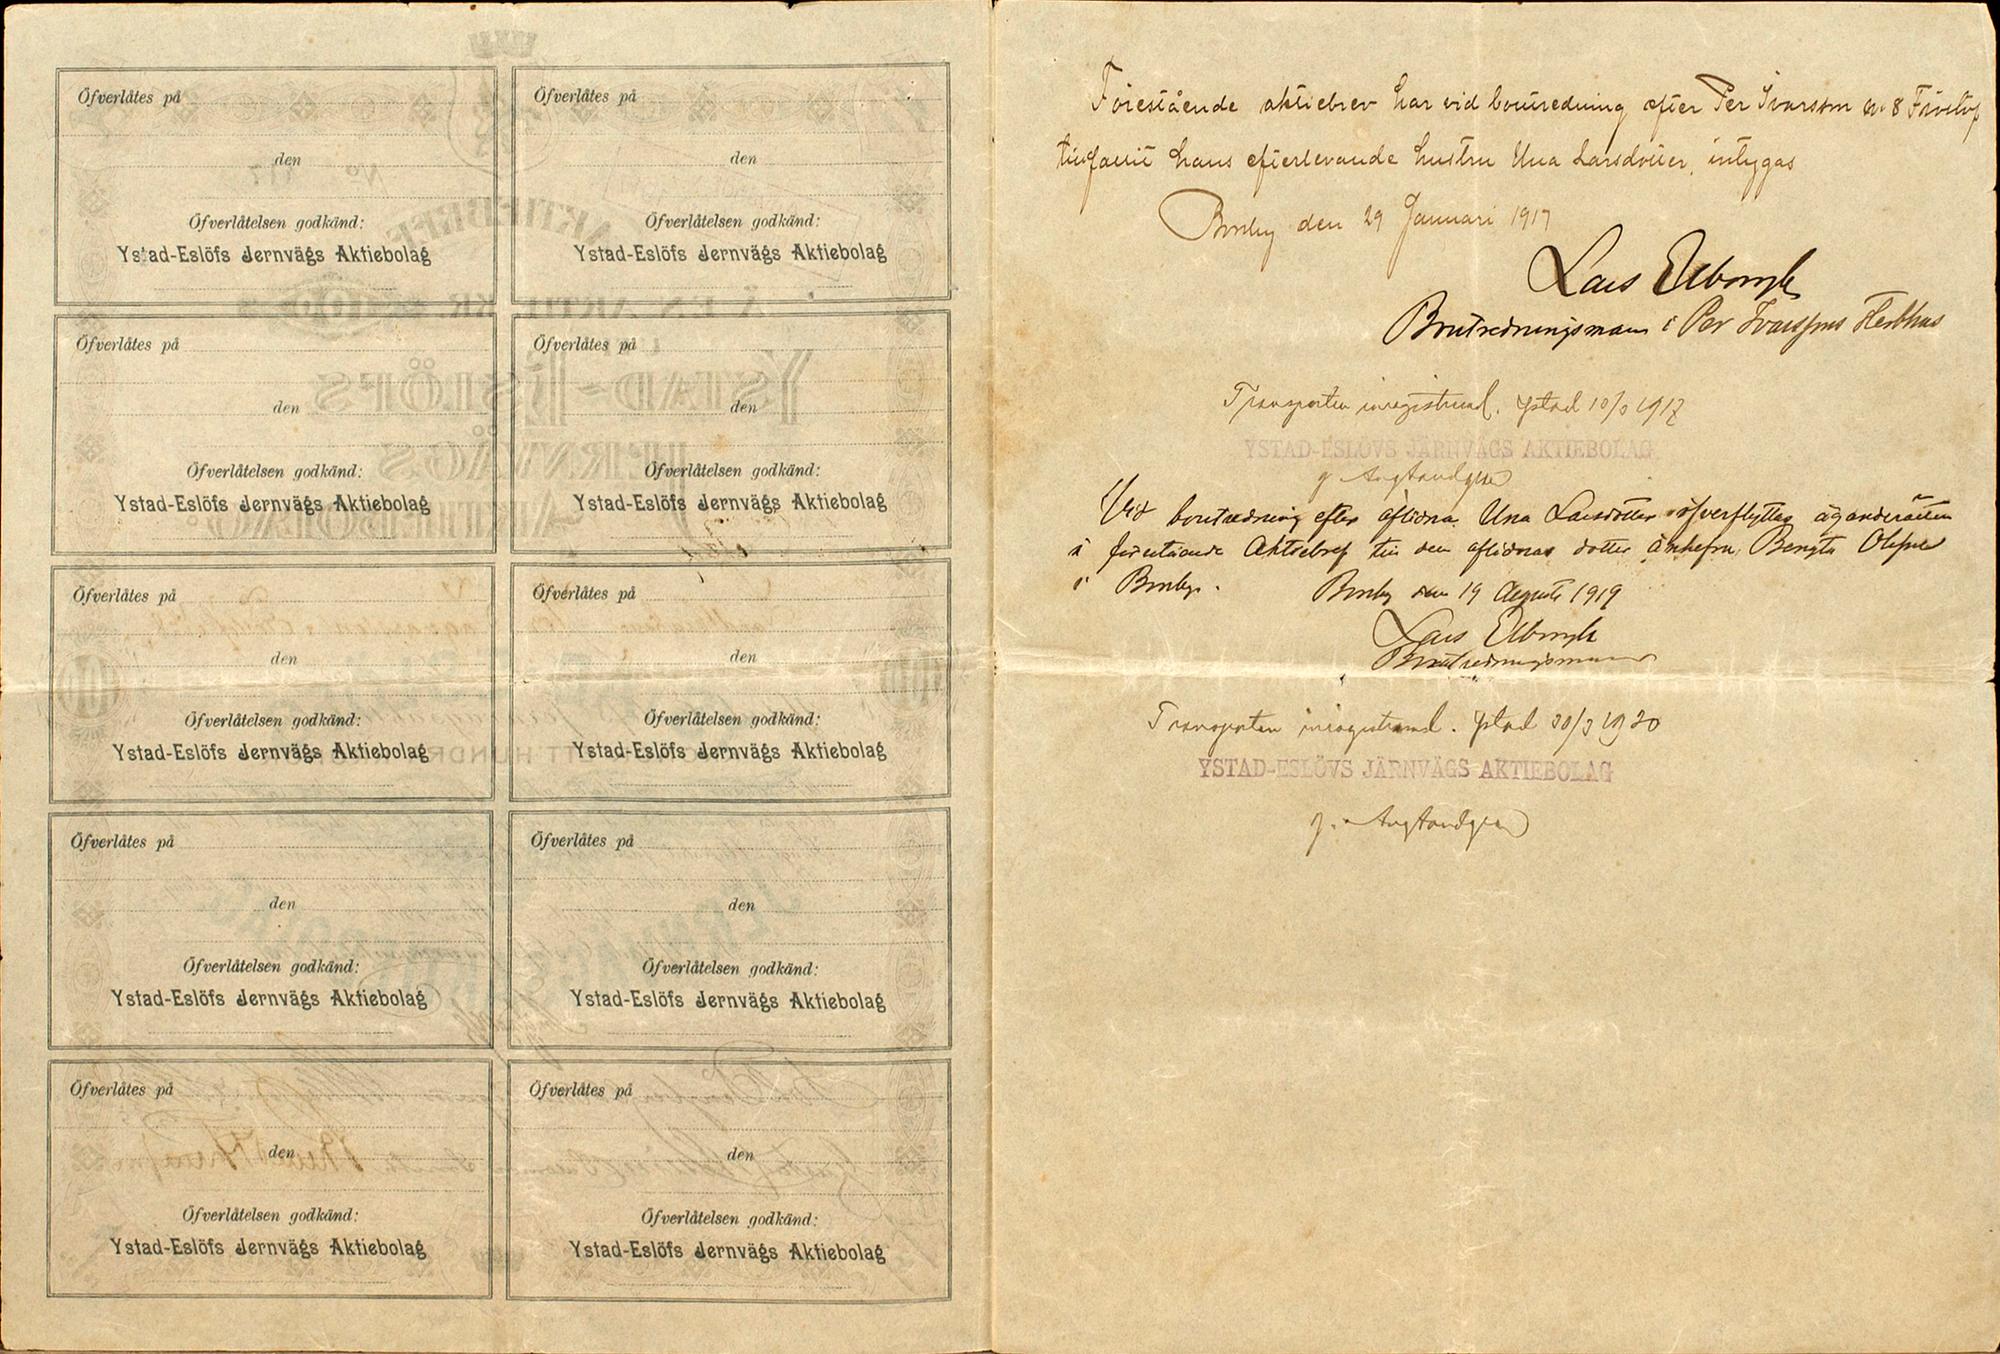 Öfverlåtes på
den
Öfverlåtelsen godkänd:
Ystad-Eslöfs Jernvägs Aktiebolag
Öfverlåtes på
den
Öfverlåtelsen godkänd:
Ystad-Eslöfs Jernvägs Aktiebolag
Öfverlåtes på
den
Öfverlåtelsen godkänd:
Ystad-Eslöfs Jernvägs Aktiebolag
Öfverlåtes på
den
Öfverlåtelsen godkänd:
Ystad-Eslöfs Jernvägs Aktiebolag
Öfverlåtes på
den
Öfverlåtelsen godkänd:
Ystad-Eslöfs Jernvägs Aktiebolag
Öfverlåtes på
den
Öfverlåtelsen godkänd:
Ystad-Eslöfs Jernvägs Aktiebolag
Öfverlåtes på
den
Öfverlåtelsen godkänd:
Ystad-Eslöfs Jernvägs Aktiebolag
Öfverlåtes på
den
Öfverlåtelsen godkänd:
Ystad-Eslöfs Jernvägs Aktiebolag
Öfverlåtes på
den
Öfverlåtelsen godkänd:
Ystad-Eslöfs Jernvägs Aktiebolag
Öfverlåtes på
den
Öfverlåtelsen godkänd:
Ystad-Eslöfs Jernvägs Aktiebolag
Förestående aktiebrev har vid boutredning efter Per Ivarsson 8
tillfallit hans efterlevande hustru Una Larsdotter, intygas
Borrby den 29 Januari 1917
Lars Elborgh
Boutredningsman i Per Ivarssons Sterbhus
Transporten inregistrerad. Ystad 10/3 1917
YSTAD-ESLÖVS JÄRNVÄGS AKTIEBOLAG
Vid boutredning efter aflidna Una Larsdotter öfverflyttas äganderätten
å förestående Aktiebref till den aflidnas dotter änkefru Bengta Olsson
i Borrby. Borrby den 19 Augusti 1919
Lars Elborgh
Boutredningsman
Transporten inregistrerad. Ystad 30/3 1920
YSTAD-ESLÖVS JÄRNVÄGS AKTIEBOLAG